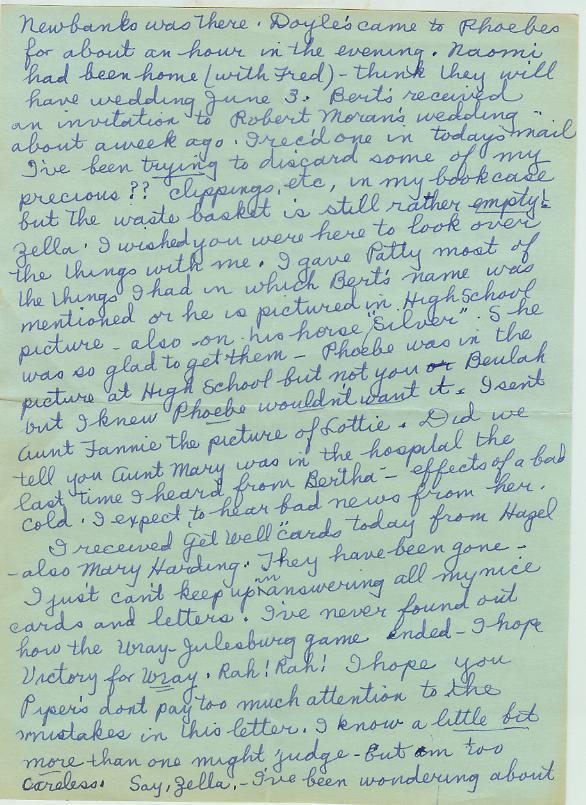 Newbanks was there. Doyle's came to Phoebes
for about an hour in the evening. Naomi
had been home (with Fred) - think they will
have wedding June 3. Bert's received
an invitation to Robert Moran's wedding
about a week ago. I rec'd one in todays mail
I've been trying to discard some of my
precious ?? clippings, etc, in my bookcase
but the waste basket is still rather empty!
Zella. I wished you were here to look over
the things with me. I gave Patty most of
the things I had in which Bert's name was
mentioned or he is pictured in High School
picture - also on his horse "Silver". She
was so glad to get them - Phoebe was in the
picture at High School but not you or Beulah
but I knew Phoebe wouldn't want it. I sent
Aunt Fannie the picture of Lottie. Did we
tell you Aunt Mary was in the hospital the
last time I heard from Bertha - effects of a bad
cold. I expect to hear bad news from her.
I received "Get Well" cards today from Hazel
- also Mary Harding. They have been gone -
I just can't keep up in answering all my nice
cards and letters. I've never found out
how the Wray-Julesburg game ended - I hope
Victory for Wray. Rah! Rah! I hope you
Piper's dont pay too much attention to the
mistakes in this letter. I know a little bit
more than one might judge - but am too
careless. Say, Zella, - I've been wondering about